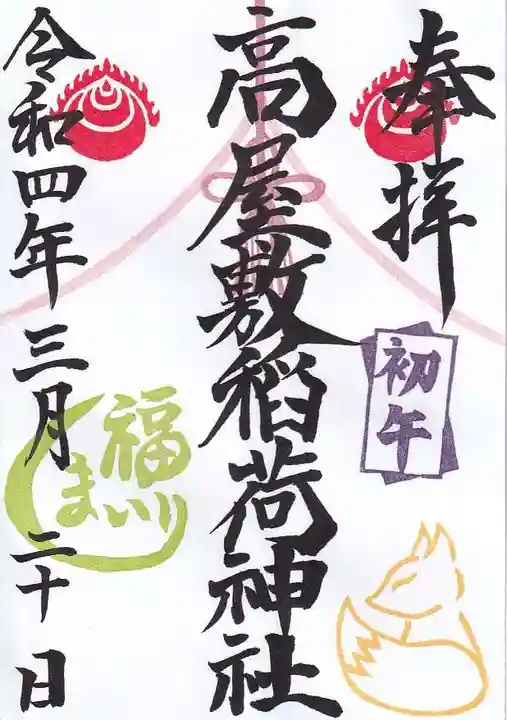 奉拝
初午
高屋敷稲荷神社
令和四年三月二十日
福
まいり